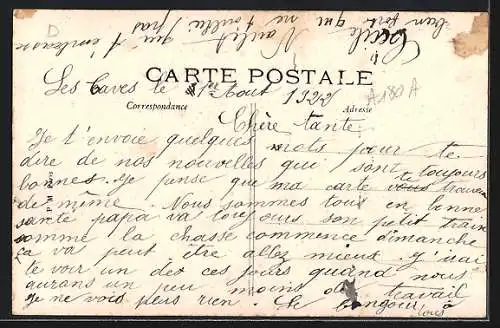 CARTE POSTALE
Correspondance
Adresse
A180A
D
Les Caves le 1er Aout 1922
Chère tante
Je t'envoie quelques mots pour te
dire de nos nouvelles qui sont toujours
bonnes. Je pense que ma carte vous trouvera
de même. Nous sommes tous en bonne
santé papa va toujours son petit train
comme la chasse commence dimanche
ça va peut être allez mieux. J'irai
te voir un des ces jours quand nous
aurons un peu moins de travail
Je ne vois pers rien. Le bonjour à
tous
bien fort que ne
Cecile
qui t'embrasse